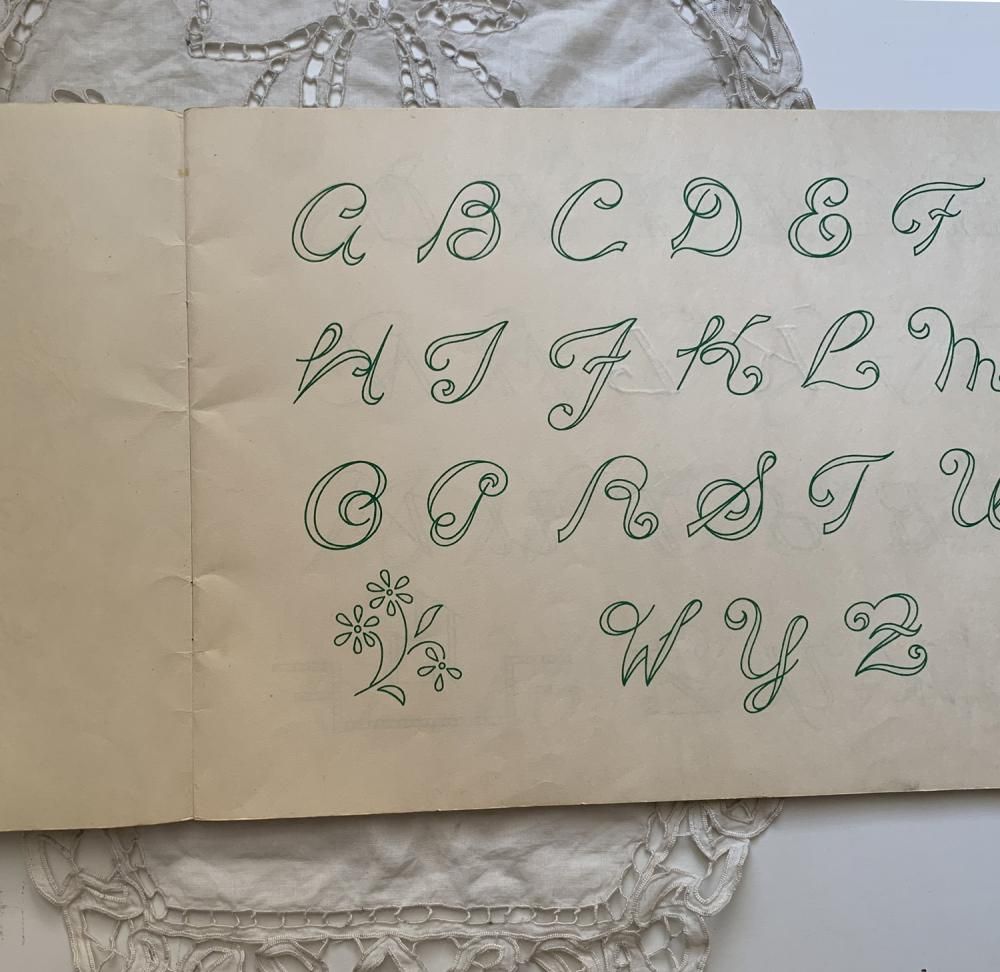 A B C D E F
H I J K L M
O P R S T U
W Y Z